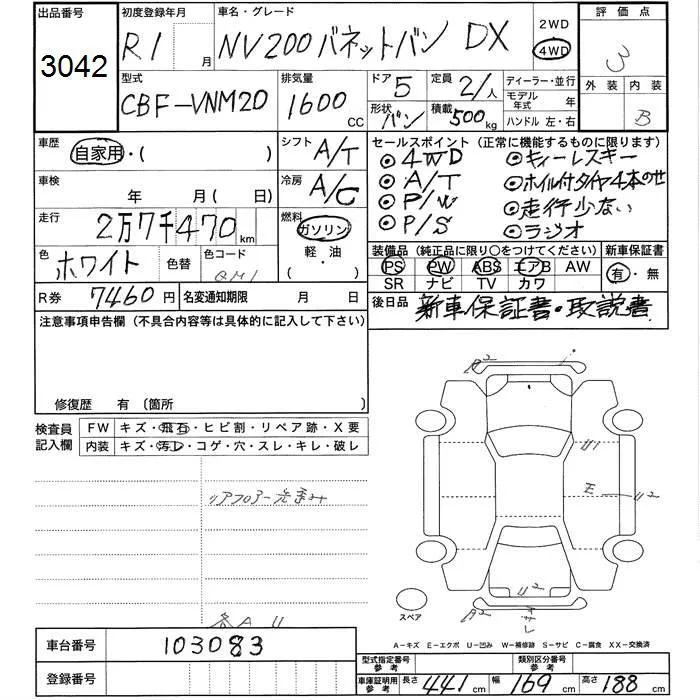 出品番号 3042
初度登録年月 R1 月
車名・グレード NV200バネットバン DX
2WD
4WD
評価点 3
外装 内装 B
型式 CBF-VNM20
排気量 1600 CC
ドア 5
形状 バン
定員 2/ 人
積載 500kg
ディーラー・並行
モデル年式 年
ハンドル 左・右
車歴 自家用・( )
シフト A/T
車検 年 月(日)
冷房 A/C
走行 2万7千470 km
燃料 ガソリン
軽・油
( )
色 ホワイト 色替 色コード QM1
R券 7460円 名変通知期限 月 日
セールスポイント (正常に機能するものに限ります)
◎4WD ◎キーレスキー
◎A/T ◎ホイル付タイヤ4本のせ
◎P/W ◎走行少ない
◎P/S ◎ラジオ
装備品 (純正品に限り〇をつけてください) 新車保証書
PS PW ABS エアB AW 有・無
SR ナビ TV カワ
後日品 新車保証書・取説書
注意事項申告欄 (不具合内容等は具体的に記入して下さい)
修復歴 有 〔箇所 〕
検査員記入欄
FW キズ・飛石・ヒビ割・リペア跡・X要
内装 キズ・汚レ・コゲ・穴・スレ・キレ・破レ
リアフロアー
各A U
A2
U1
E U2
U2
A2
スペア
A-キズ E-エクボ U-凹み W-補修跡 S-サビ C-腐食 XX-交換済
車台番号 103083
登録番号
型式指定番号 参考
類別区分番号 参考
車庫証明用 参考 長さ 441 cm 幅 169 cm 高さ 188 cm